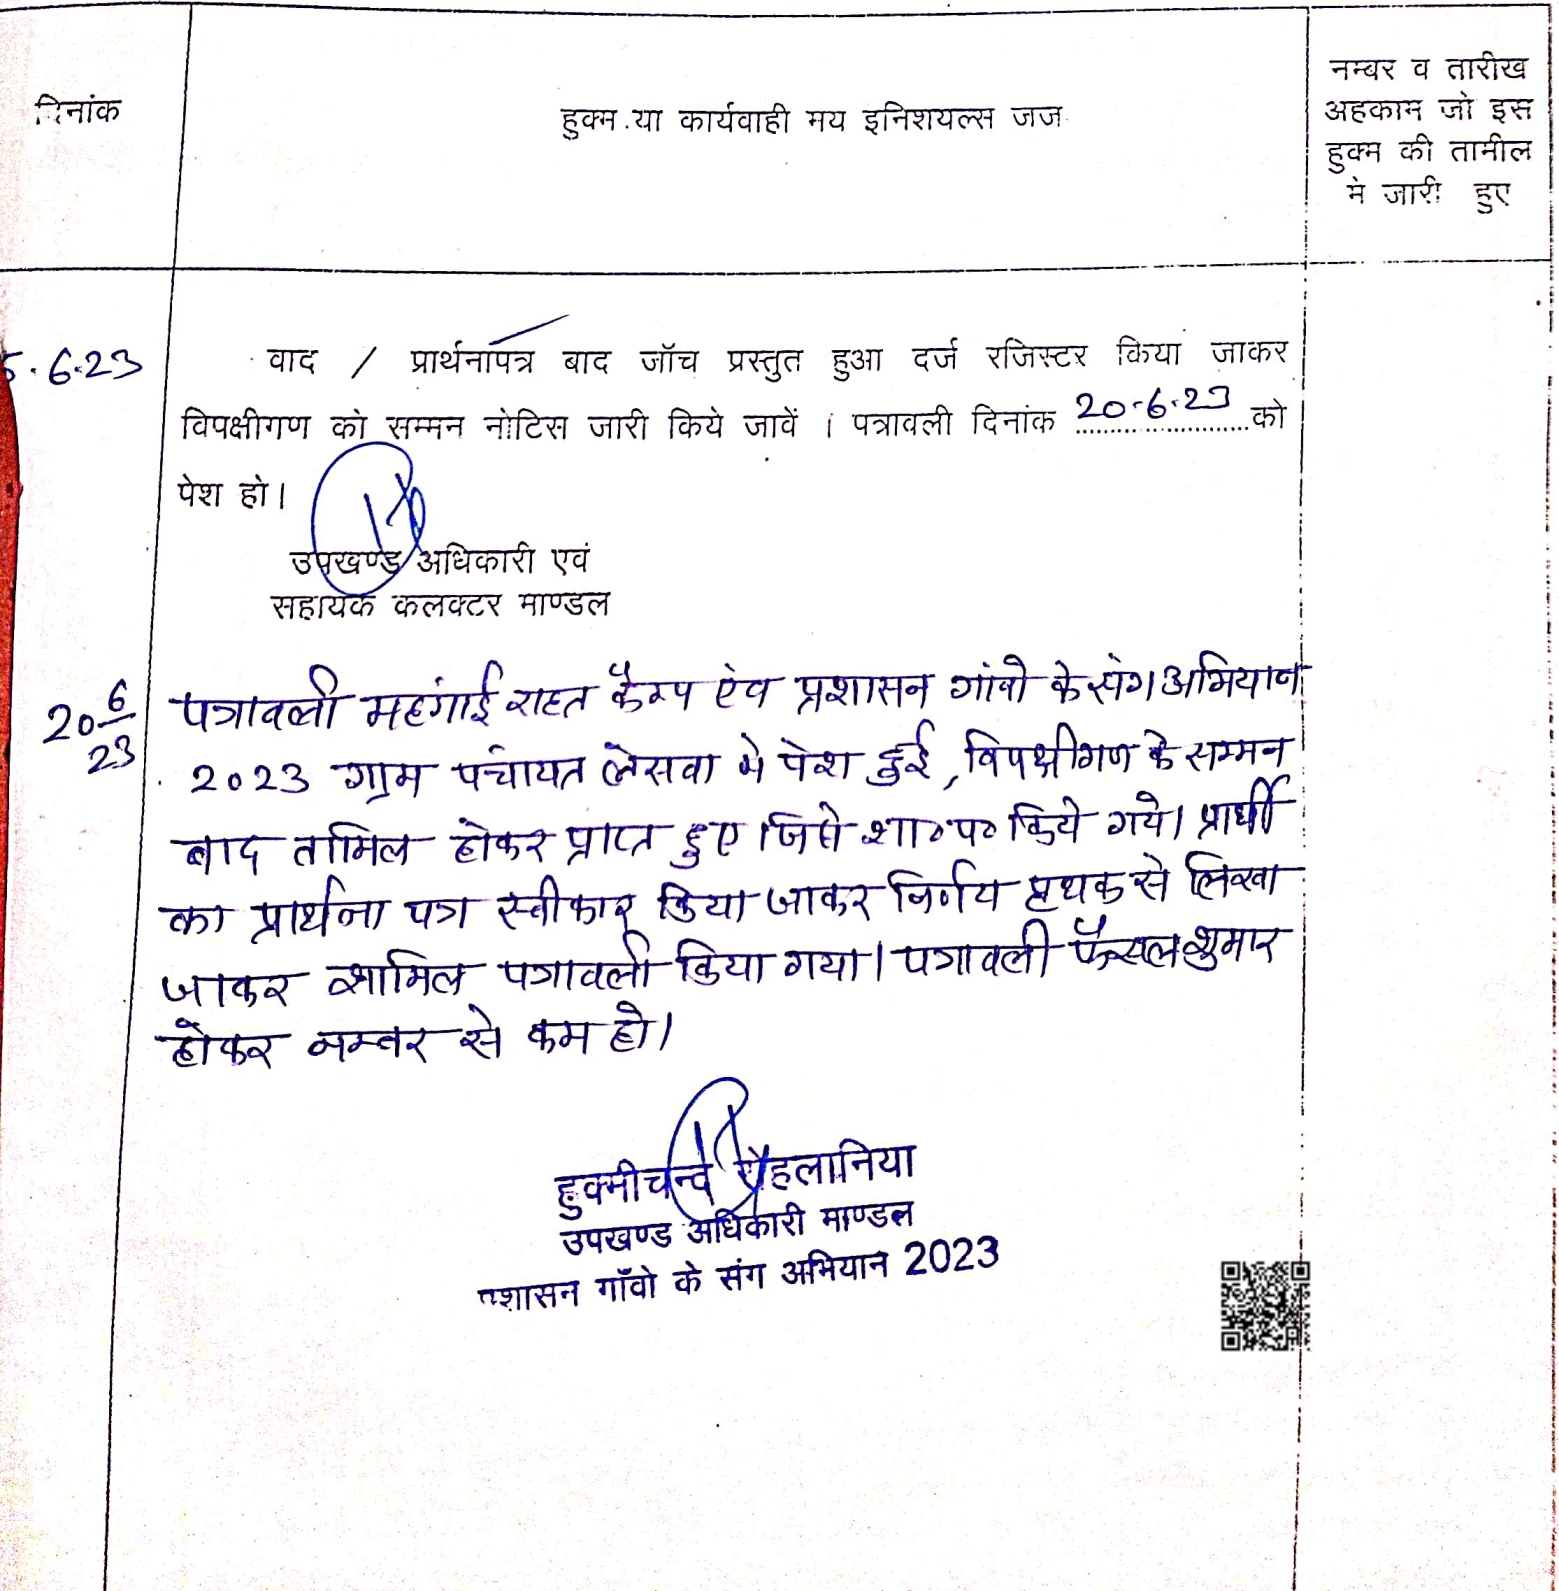 दिनांक
हुक्म या कार्यवाही मय इनिशयल्स जज
नम्बर व तारीख
अहकाम जो इस
हुक्म की तामील
मे जारी हुए
5.6.23
वाद / प्रार्थनापत्र बाद जॉच प्रस्तुत हुआ दर्ज रजिस्टर किया जाकर
विपक्षीगण को सम्मन नोटिस जारी किये जावें । पत्रावली दिनांक 20-6-23 को
पेश हो।
उपखण्ड अधिकारी एवं
सहायक कलक्टर माण्डल
20 6/23
पत्रावली महंगाई राहत कैम्प ऐंव प्रशासन गांवो के संग अभियान
2023 ग्राम पंचायत लेसवा मे पेश हुई, विपक्षीगण के सम्मन
बाद तामिल होकर प्राप्त हुए जिसे शा०प० किये गये। प्रार्थी
का प्रार्थना पत्र स्वीकार किया जाकर निर्णय प्रथक से लिखा
जाकर शामिल पत्रावली किया गया। पत्रावली फैसल शुमार
होकर नम्बर से कम हो।
हुक्मीचन्द रोहलानिया
उपखण्ड अधिकारी माण्डल
प्रशासन गाँवो के संग अभियान 2023